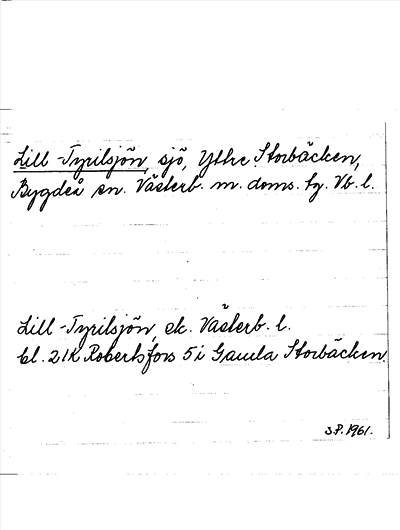 Lill-Tyrilsjön, sjö, Yttre Storbäcken,
Bygdeå sn. Västerb. m. doms. tg. Vb. l.
Lill-Tyrilsjön, ek. Västerb. l.
bl. 21K Robertsfors 5i Gamla Storbäcken.
S.P. 1961.